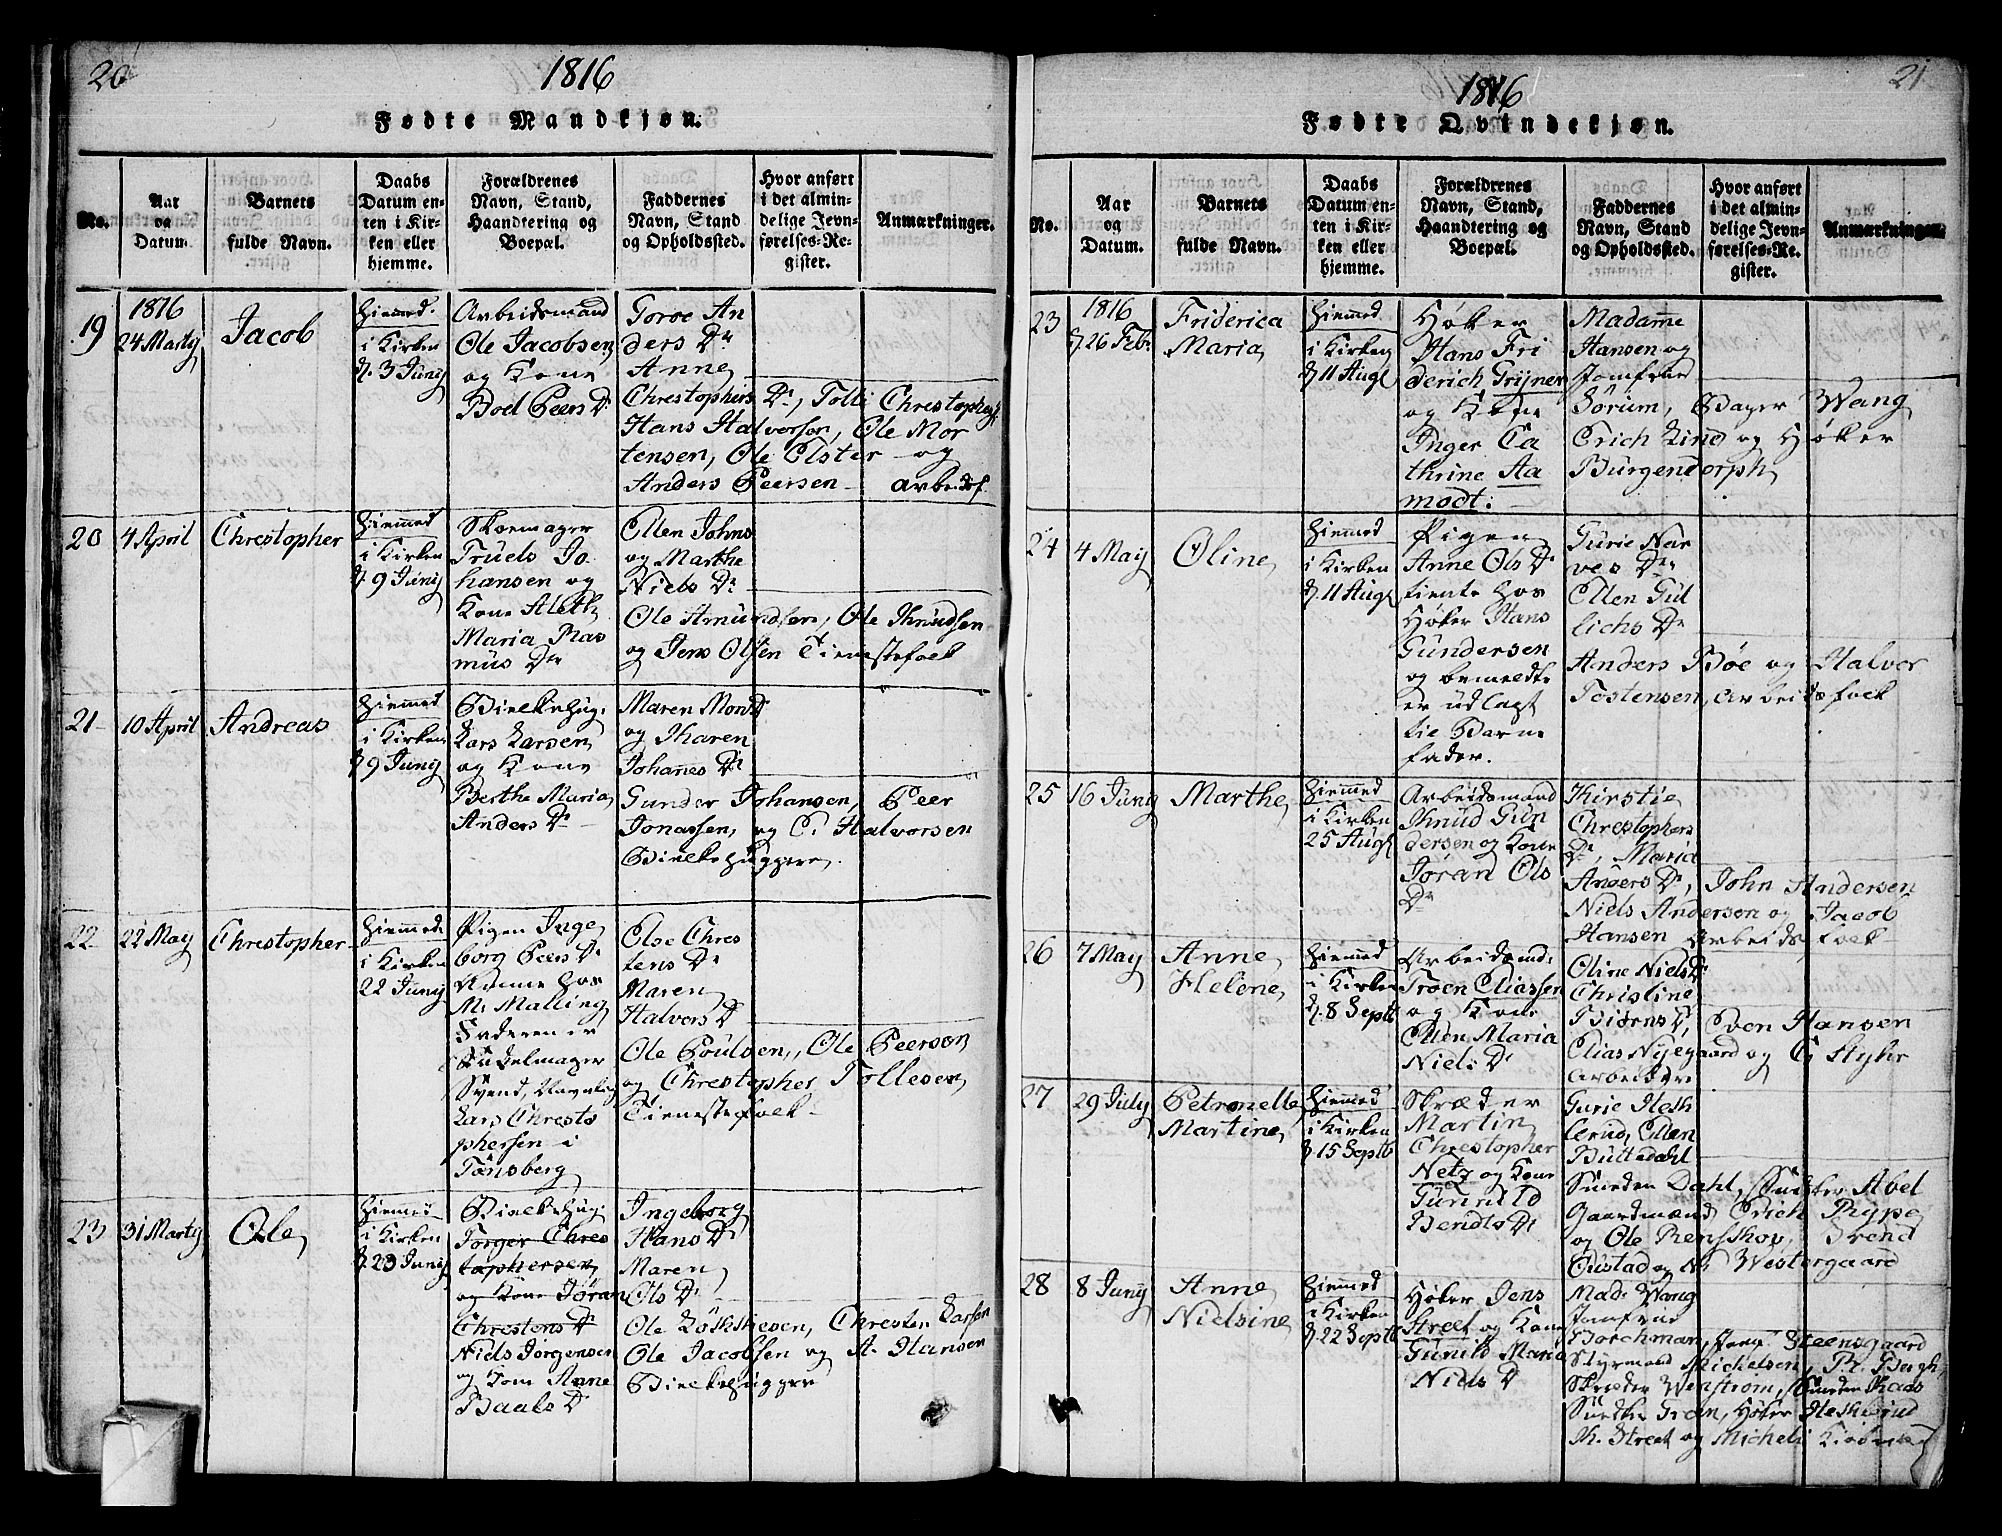 20
1816
Fødte Mandkjøn.
No.
Aar
og
Datum.
Barnets
fulde Navn.
Daabs
Datum en-
ten i Kir-
ken eller
hjemme.
Forældrenes
Navn, Stand,
Haandtering og
Boepæl.
Faddernes
Navn, Stand
og Opholdssted.
Hvor anført
i det almin-
delige Jevn-
førelses-Re-
gister.
Anmærkninger.
19
1816
24 Marty
Jacob
Hiemmed.
i Kirken
d. 3 Juny
Arbeidsmand
Ole Jacobsen
og Kone
Boel Peers Dr
Goroe An
ders Dr
Anne
Christophers Dr, Tolli Christophers
Hans Halvorsen, Ole Mor
tensen, Ole Elster og
Anders Peersen arbeidsf.
20
4 April
Chrestopher
Hiemmed
i Kirken
d 9 Juny
Skoemager
Truels Jo
hansen og
Kone Aleth
Maria Ras
mus Dr
Ellen Johns
og Marthe
Niels Dr
Ole Amundsen, Ole Knudsen
og Jens Olsen Tienestefolk
21
10 April
Andreas
Hiemmed
i Kirken
d 9 Juny
Bielkehug.
Lars Larsen
og Kone
Berthe Maria
Anders Dr
Maren Mons Dr
og Karen
Johannes Dr
Gunder Johansen, Peer
Jonassen, og C. Halvorsen
Bielkehuggere.
22
22 May
Chrestopher
Hiemmed
i Kirken
22 Juny
Pigen Inge
borg Peers Dr
Amme hos
M. Malling
Faderen er
Sadelmager
Svend, Navnlig
Lars Chresto
phersen i
Tønsberg
Else Chres
tens Dr
Maren
Halvors Dr
Ole Poulsen, Ole Peersen
og Chrestopher Tollesen
Tienestefolk
23
31 Marty
Ole
Hiemmed
i Kirken
d. 23 Juny
Bielkehug.
Torger Chres
tophersen
og Kone Jøran
Chrestens Dr
Niels Jørgensen
og Kone Anne
Baals Dr
Ingeborg
Hans Dr
Maren
Ols Dr
Ole Løkkesven, Chresten Larsen
Ole Jacobsen og A. Hansen
Bielkehuggere
21
1816
Fødte Qvindekjøn.
No.
Aar
og
Datum.
Barnets
fulde Navn.
Daabs
Datum en-
ten i Kir-
ken eller
hjemme.
Forældrenes
Navn, Stand,
Haandtering og
Boepæl.
Faddernes
Navn, Stand
og Opholdssted.
Hvor anført
i det almin-
delige Jevn-
førelses-Re-
gister.
Anmærkninger.
23
1816
d 26 Feb.
Friderica
Maria
Hiemmed
i Kirken
d. 11 Aug
Høker
Hans Fri
derich Grÿner
og Kone
Inger Ca
thrine Aa
modt.
Madamme
Hansen og
Jomfrue
Sørum, Bager Wang
Erich Lind og Høker
Burgendorph
24
4 May
Oline
Hiemmed
i Kirken
d. 11 Aug
Pigen
Anne Ols Dr
tiente hos
Høker Hans
Gundersen
og bemeldte
er udlagt
til Barne
fader.
Gurie Nar
ves Dr
Ellen Gul
lichs Dr
Anders Bøe og Halvor
Tostensen, Arbeidsfolk
25
16 Juny
Marthe
Hiemmed
i Kirken
25 Aug
Arbeidsmand
Knud Gun
dersen og Kone
Jøran Ols
Dr
Kirstie
Chrestophers
Dr, Maria
Anders Dr, John Andersen
Niels Andersen og Jacob
Hansen Arbeidsfolk
26
7 May
Anne
Helene
Hiemmed
i Kirken
d. 8 Septb
Arbeidsmd.
Troen Eliassen
og Kone
Ellen Maria
Niels Dr
Oline Niels Dr
Christine
Biørns Dr, Even Hansen
Elias Nyegaard og C. Styhr
Arbeidere
27
29 July
Petronelle
Martine
Hiemmed
i Kirken
d 15 Septb
Skræder
Martin
Chrestopher
Netz og Kone
Gunnild
Bendts Dr
Gurie Hesk
lerud, Ellen
Buttedahl
Smeden Dahl, Axel
Gaardmand, Erich Rype
og Ole Rensskov, Svend
Custad og N. Westergaard
28
8 Juny
Anne
Nielsine
Hiemmed
i Kirken
d 22 Septb
Høker Jens
Street og Kone
Gunild Maria
Niels Dr
Mad. Wang
Jomfrue
Borchman, Jomf. Steensgaard
Styrmand Michelsen, R. Bergh
Skræder Wenstrøm, Smeden Kaas
Smeden Gran, Høker Heskerud
K. Street og Micheli